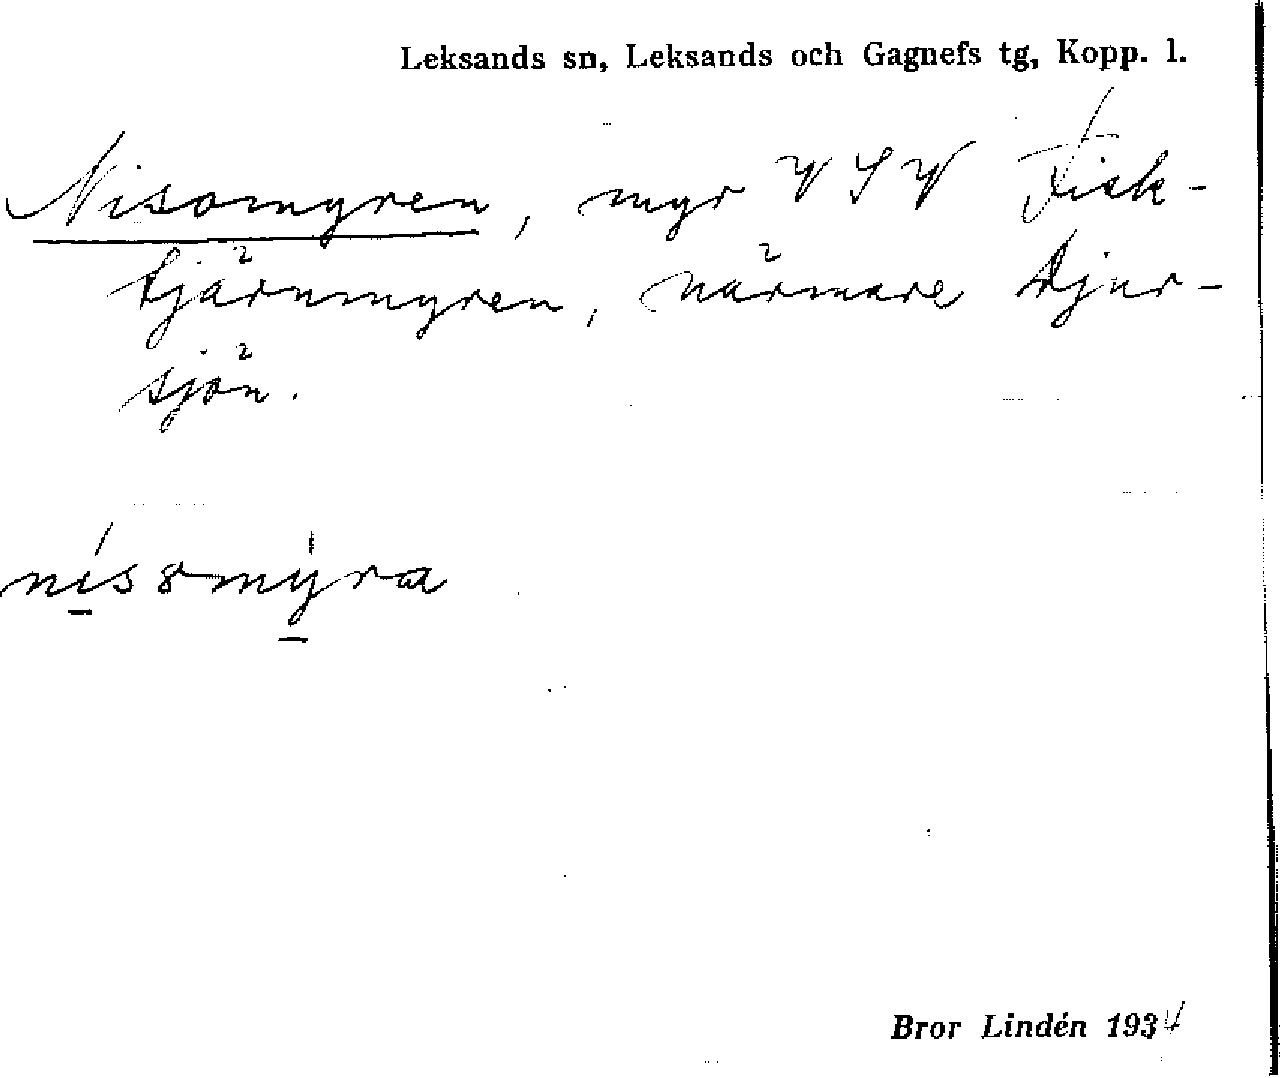 Leksands sn, Leksands och Gagnefs tg, Kopp. l.
Nisomyren, myr V S V Fisk-
tjärnmyren, närmare Djur-
sjön.
nísomýra
Bror Lindén 1934